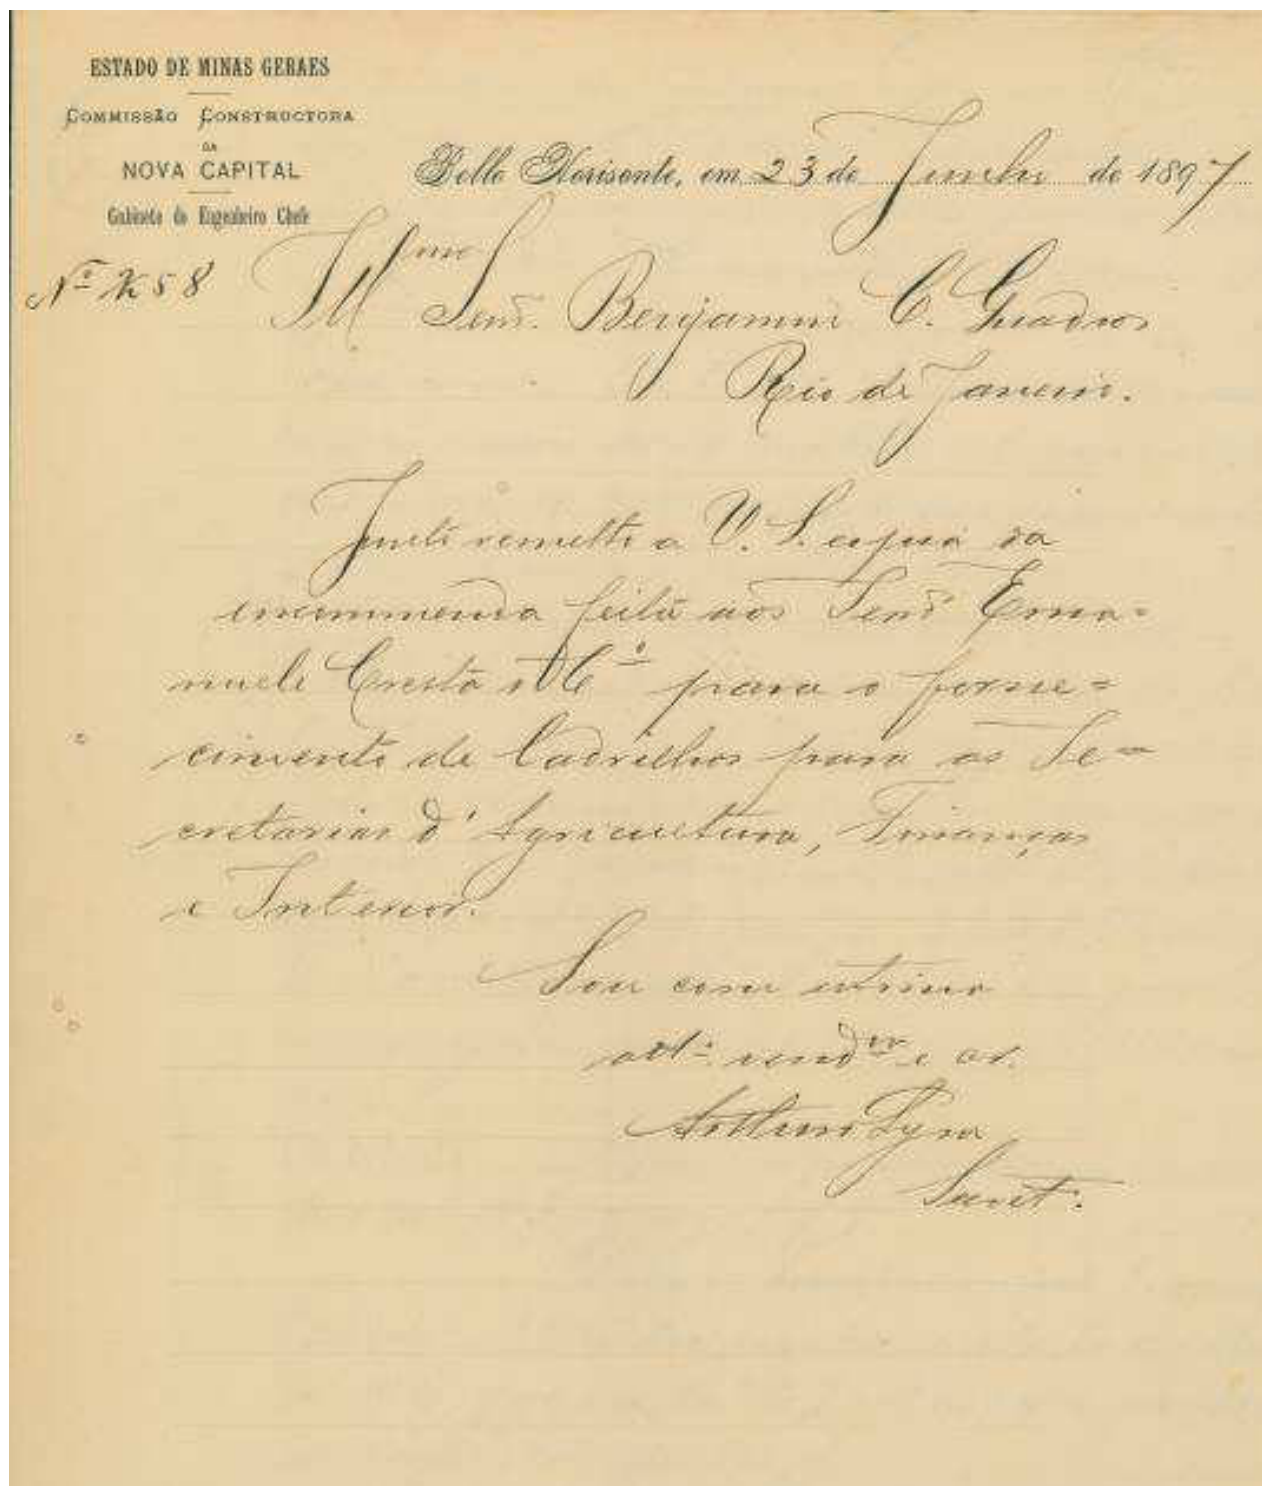 ESTADO DE MINAS GERAES
COMMISSÃO CONSTRUCTORA
DA
NOVA CAPITAL
Gabinete do Engenheiro Chefe
Bello Horisonte, em 23 de Junho de 1897
Nº 58
Illmo Senr. Benjamim C. Quadros
Rio de Janeiro.
Junto remetto a V. S. copia da
encommenda feita aos Senrs Ema=
nuele Cresta & Cª para o forne=
cimento de ladrilhos para as Se=
cretarias d'Agricultura, Finanças
e Interior.
Sou com estima
attº venerdor e cr.
Arthur Lyra